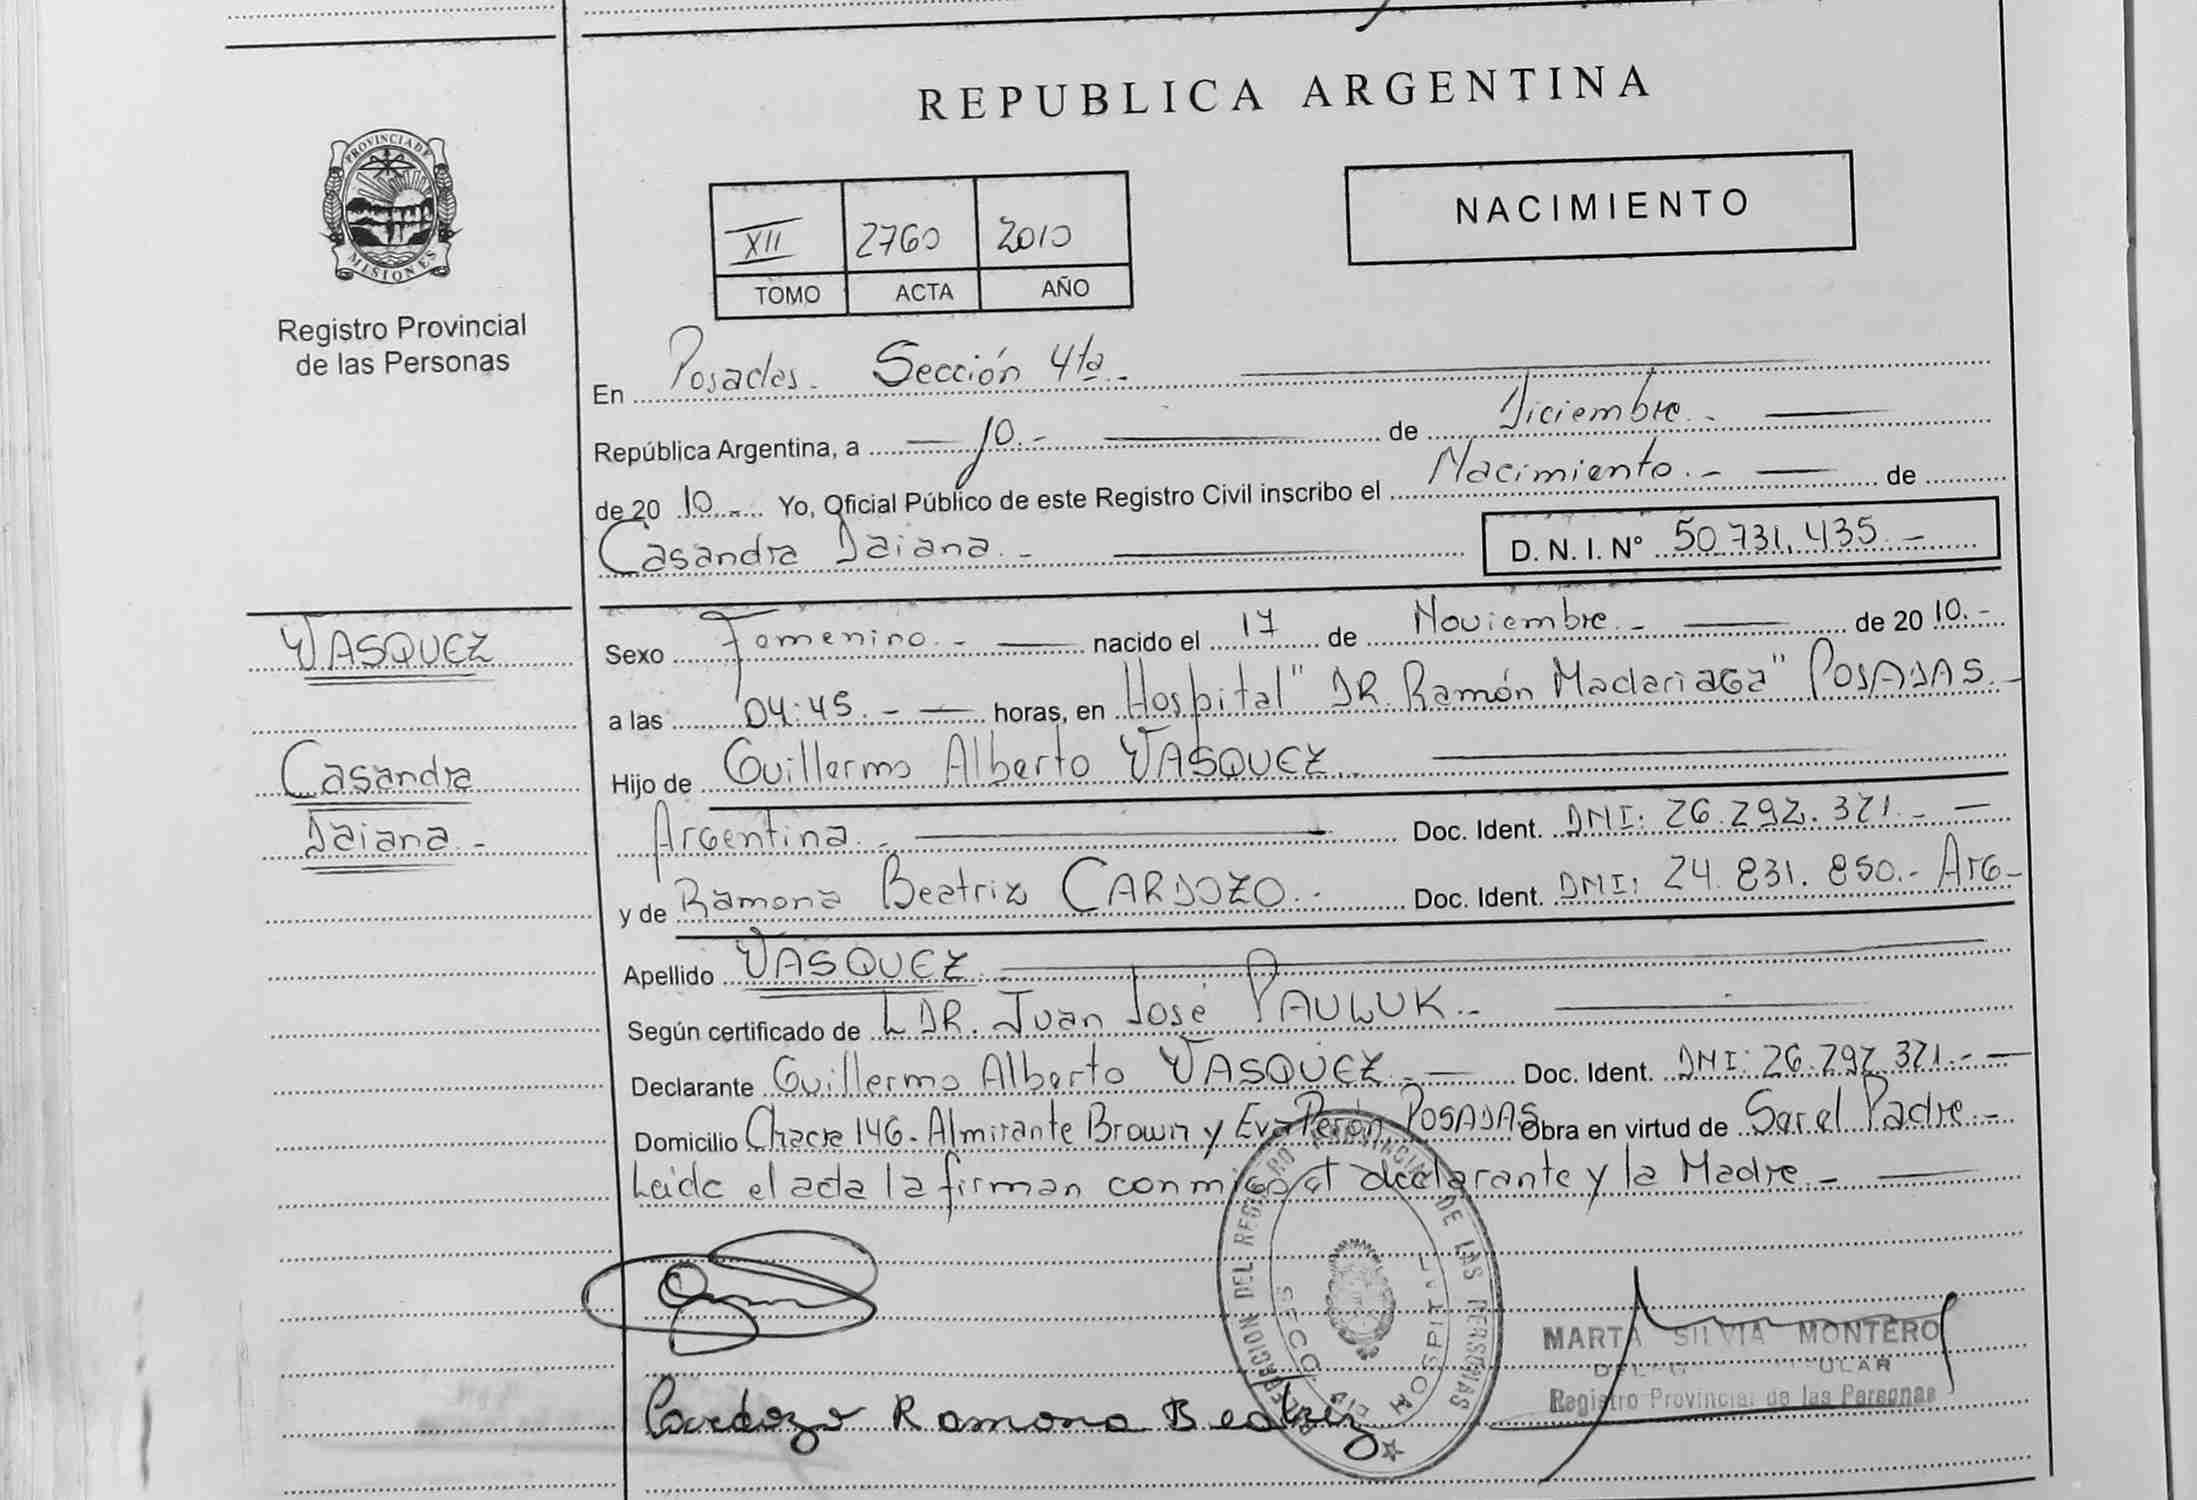 REPUBLICA ARGENTINA
PROVINCIA DE
MISIONES
Registro Provincial
de las Personas
NACIMIENTO
XII 2760 2010
TOMO ACTA AÑO
En Posadas. Sección 4ta.-
República Argentina, a 10.- de Diciembre.-
de 2010.- Yo, Oficial Público de este Registro Civil inscribo el Nacimiento.- de
Casandra Daiana.- D. N. I. N° 50.731.435.-
VASQUEZ
Casandra
Daiana.-
Sexo Femenino.- nacido el 17 de Noviembre.- de 2010.-
a las 04:45.- horas, en Hospital "DR. Ramón Madariaga" POSADAS.-
Hijo de Guillermo Alberto VASQUEZ.
Argentina.- Doc. Ident. DNI: 26.292.321.-
y de Ramona Beatriz CARDOZO.- Doc. Ident. DNI: 24.831.850.- Arg-
Apellido VASQUEZ.
Según certificado de DR. Juan José PAULUK.-
Declarante Guillermo Alberto VASQUEZ.- Doc. Ident. DNI: 26.292.321.-
Domicilio Chacra 146. Almirante Brown y Eva Perón POSADAS Obra en virtud de Ser el Padre.-
Leída el acta la firman conmigo el declarante y la Madre.-
DELEGACION DEL REGISTRO PROVINCIAL DE LAS PERSONAS
HOSPITAL
MARTA SILVIA MONTERO
Registro Provincial de las Personas
Cardozo Ramona Beatriz